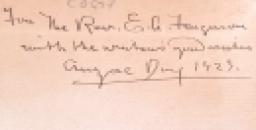 For The Rev. E. A. Ferguson
with the writers good wishes
Day 1923.